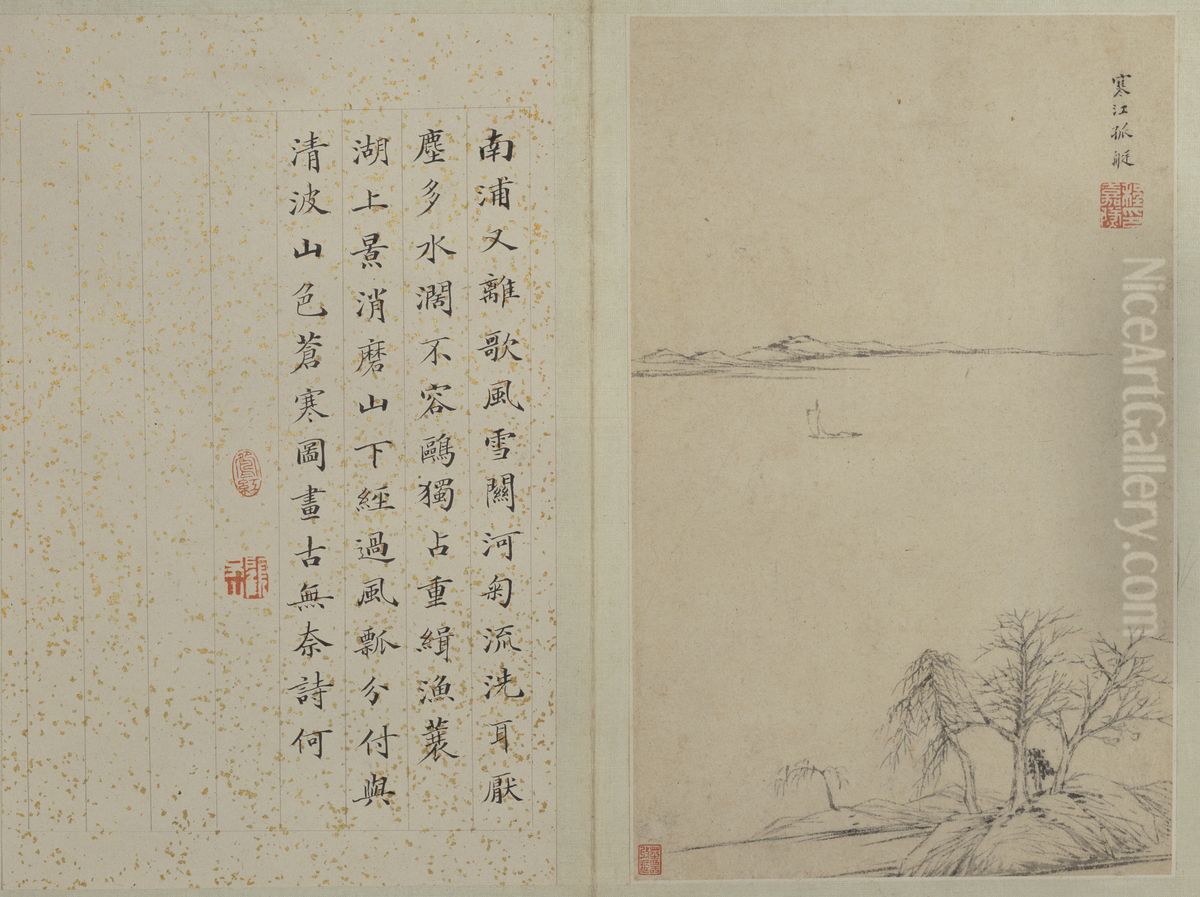 寒江孤艇
南浦又離歌風雪關河匊流洗耳厭
塵多水濶不容鷗獨占重緝漁蓑
湖上景消磨山下經過風瓢分付與
清波山色蒼寒圖畫古無奈詩何
NiceArtGallery.com